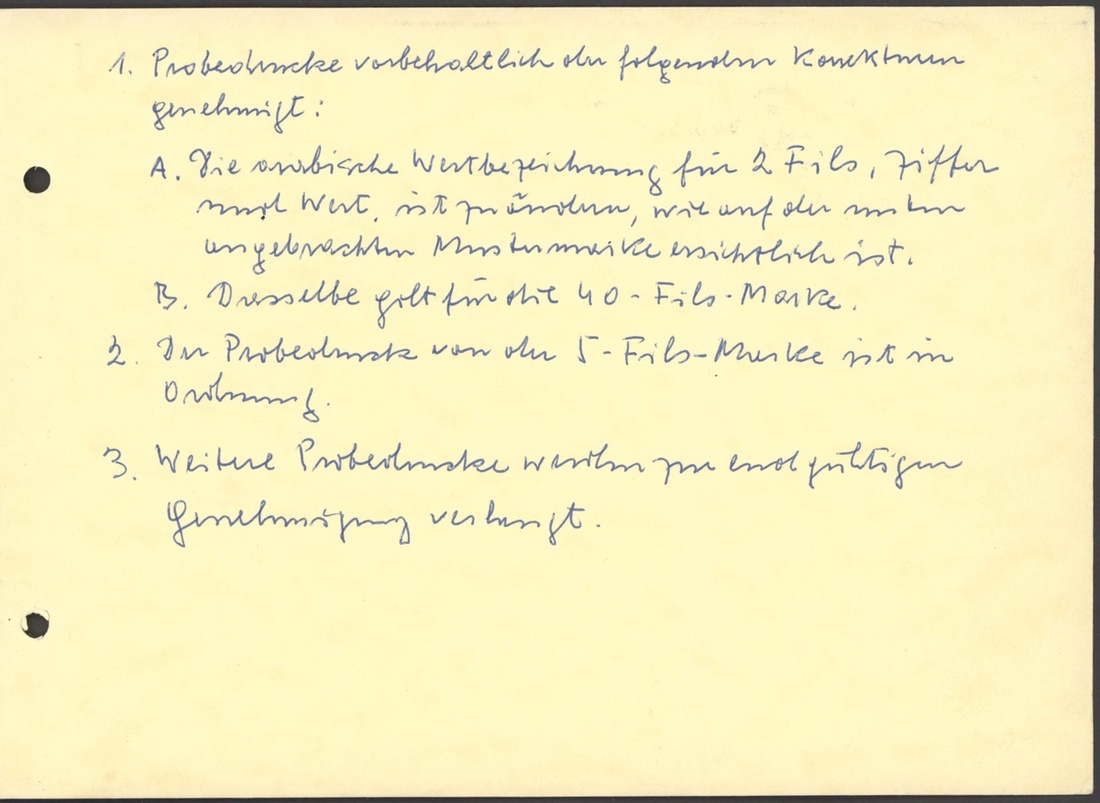 1. Probedrucke vorbehaltlich der folgenden Korrekturen
genehmigt:
A. Die arabische Wertbezeichnung für 2 Fils, Ziffer
und Wert, ist zu ändern, wie auf der unten
angebrachten Mustermarke ersichtlich ist.
B. Dasselbe gilt für die 40-Fils-Marke.
2. Der Probedruck von der 5-Fils-Marke ist in
Ordnung.
3. Weitere Probedrucke werden zur endgültigen
Genehmigung verlangt.